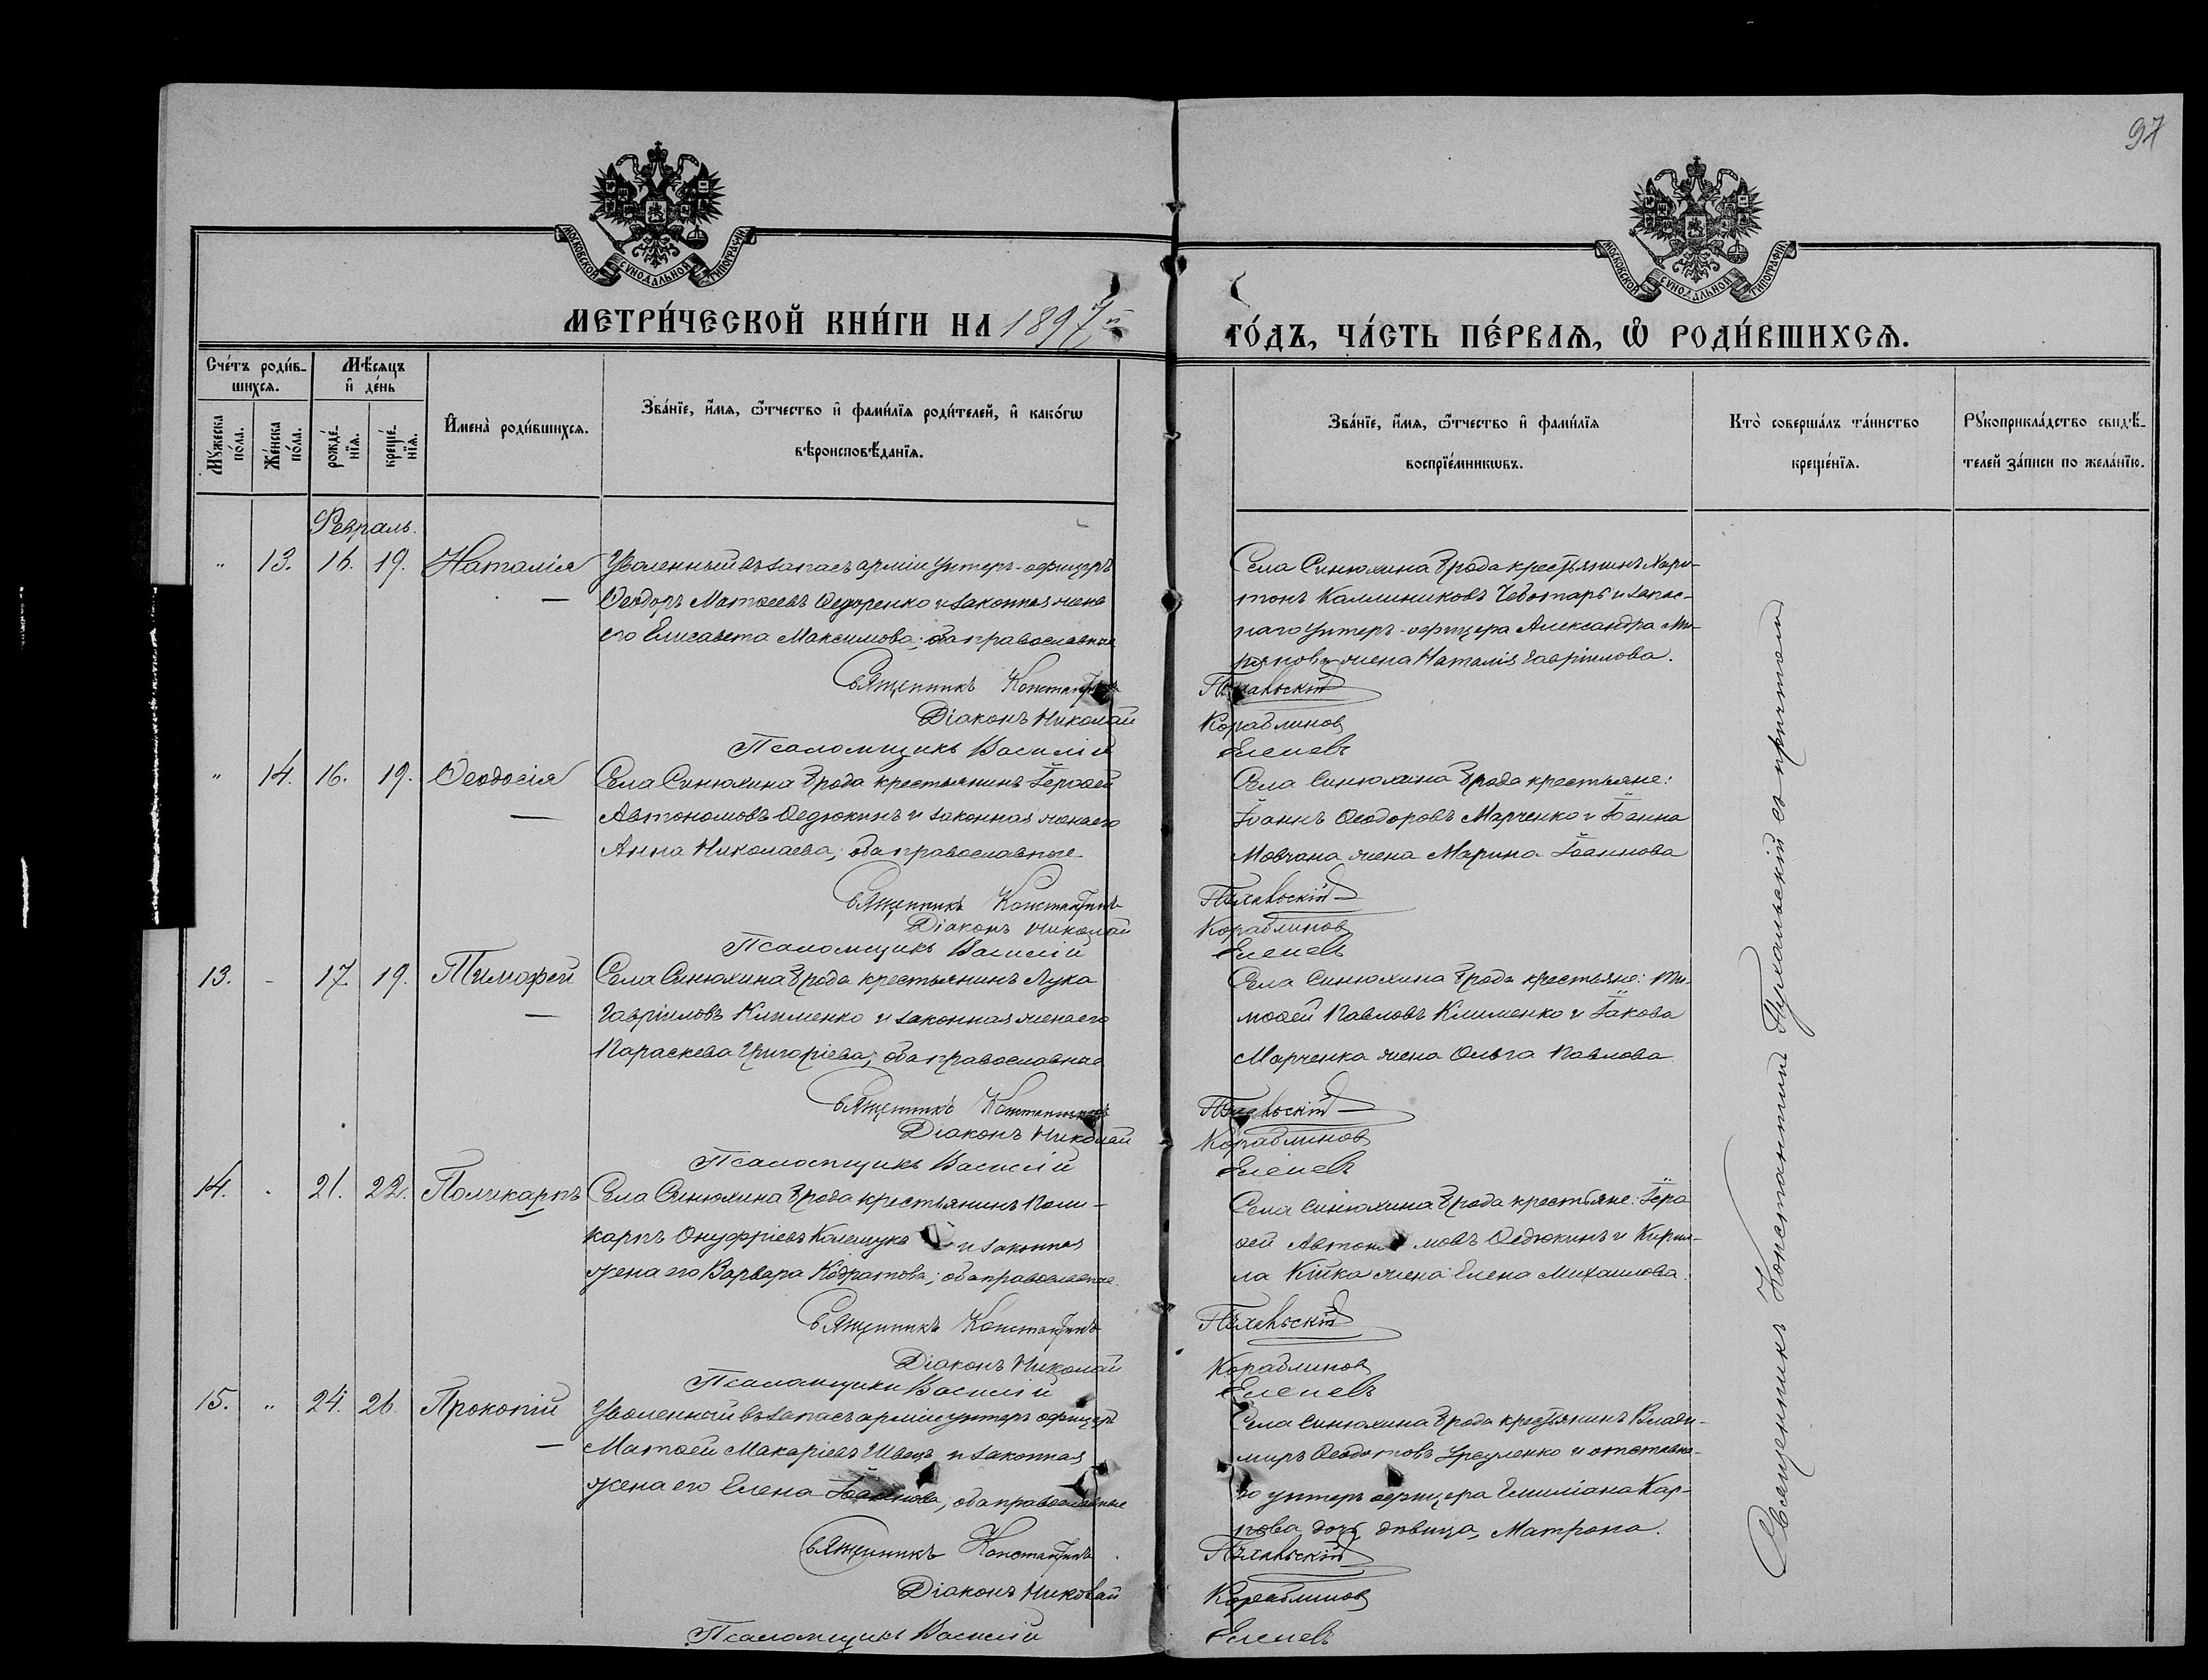 97
МОСКОВСКОЙ СѴНОДАЛЬНОЙ ТИПОГРАФІИ
МОСКОВСКОЙ СѴНОДАЛЬНОЙ ТИПОГРАФІИ
МЕТРИ́ЧЕСКОЙ КНИ́ГИ НА 1897й
ГО́ДЪ, ЧА́СТЬ ПЕ́РВАѦ, Ѽ РОДИ́ВШИХСѦ.
Сче́тъ роди́в-
шихсѧ.
Мꙋжеска по́ла.
Же́нска по́ла.
Мѣ́сѧцъ
и҆ де́нь
рожде́-
нїѧ.
креще́-
нїѧ.
И҆мена̀ роди́вшихсѧ.
Зва́нїе, и҆́мѧ, ѻ҆́тчество и҆ фами́лїѧ роди́телей, и҆ како́гѡ
вѣроисповѣ́данїѧ.
Зва́нїе, и҆́мѧ, ѻ҆́тчество и҆ фами́лїѧ
воспрїе́мникѡвъ.
Кто̀ соверша́лъ та́инство
креще́нїѧ.
Рꙋкоприкла́дство свидѣ́-
телей за́писи по жела́нїю.
Февраль.
" 13. 16. 19. Наталія
Уволенный въ запасъ арміи унтеръ-офицеръ
Ѳеодоръ Матѳеевъ Ѳедоренко и законная жена
его Елисавета Максимова; оба православные
Священникъ Константинъ
Діаконъ Николай
Псаломщикъ Василій
Села Синюхина Брода крестьянинъ Хари-
тонъ Каллиниковъ Чеботарь и запас-
наго унтеръ-офицера Александра
жена Наталія Гавріилова.
Пухальскій
Кораблинов
Еленевъ
" 14. 16. 19. Ѳеодосія
Села Синюхина Брода крестьянинъ Іероѳей
Автономовъ Ѳедюкинъ и законная жена его
Анна Николаева; оба православные
Священникъ Константинъ
Діаконъ Николай
Псаломщикъ Василій
Села Синюхина Брода крестьяне:
Іоаннъ Ѳеодоровъ Марченко и Іоанна
Мовчана жена Марина Іоаннова
Пухальскій
Кораблинов
Еленевъ
13. - 17. 19. Тимофей
Села Синюхина Брода крестьянинъ Лука
Гавріиловъ Клименко и законная жена его
Параскева Григоріева; оба православные
Священникъ Константинъ
Діаконъ Николай
Псаломщикъ Василій
Села Синюхина Брода крестьяне: Ти-
моѳей Павловъ Клименко и Іакова
Марченка жена Ольга Павлова
Пухальскій
Кораблинов
Еленевъ
14. . 21. 22. Поликарпъ
Села Синюхина Брода крестьянинъ Поли-
карпъ Онуфріевъ и законная
жена его Варвара Кодратова; оба православные.
Священникъ Константинъ
Діаконъ Николай
Псаломщикъ Василій
Села Синюхина Брода крестьяне: Іеро
ѳей Автономовъ Ѳедюкинъ и Кирил-
ла Кійка жена Елена Михаилова.
Пухальскій
Кораблинов
Еленевъ
15. " 24. 26. Прокопій
Уволенный въ запасъ арміи унтеръ офицеръ
Матѳей Макаріевъ Швецъ и законная
жена его Елена Іоаннова, оба православные
Священникъ Константинъ
Діаконъ Николай
Псаломщикъ Василій
Села Синюхина Брода крестьянинъ Влади-
миръ Ѳеодотовъ и отставна-
го унтеръ офицера Емиліана Кар-
пова дочь дѣвица, Матрона.
Пухальскій
Кораблинов
Еленевъ
Священникъ Константинъ Пухальскій съ причтомъ